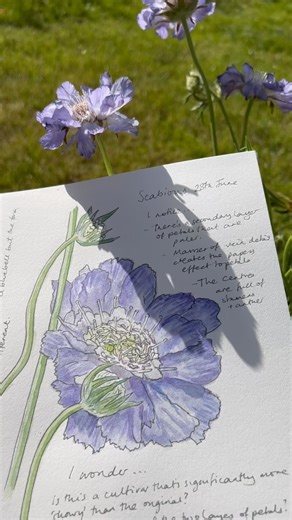 Scabiosa 25th June
I notice
- There's a boundary layer
of petals that are
paler
- Masses of vein detail
creates the papery
effect to petals
- The centres
are full of
stamens
+ anther
I wonder...
Is this a cultivar that's significantly more
'showy' than the original?
big layers of petals?
a bluebell but the